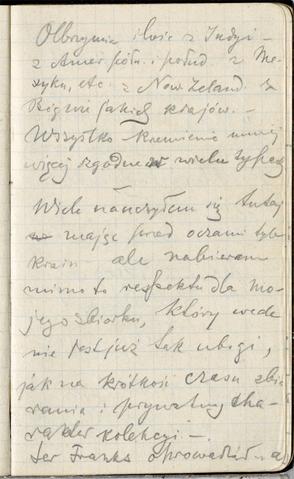 Olbrzymie ilości z Indyi –
z Amer półn. i połud. z Me-
xyku, etc. z Now. Zeland. &
Bóg wie jakich krajów. –
Wszystko kremienie mniej
więcej zgodne w wielu typach
Wiele nauczyłem się tutaj
mając przed oczami tyle
krain ale nabieram
mimo to respektu dla mo-
jego zbiorku, który wcale
nie jest już tak ubogi,
jak na krótkość czasu zbie-
rania i prywatny cha-
rakter kolekcyi –.
Ser Franks oprowadził na